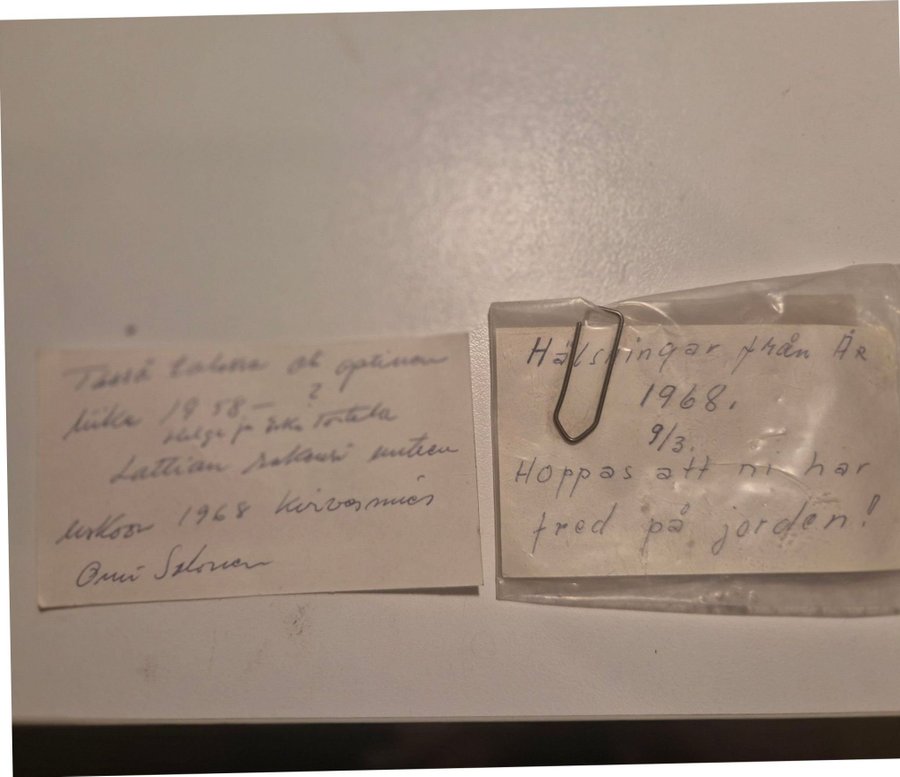 Tässä talossa oli optinen
liike 1958 – ?
Helge ja
Lattian rakensi uuteen
uskoon 1968 Kirvesmies
Onni Salonen
Hälsningar från År
1968.
9/3.
Hoppas att ni har
fred på jorden!